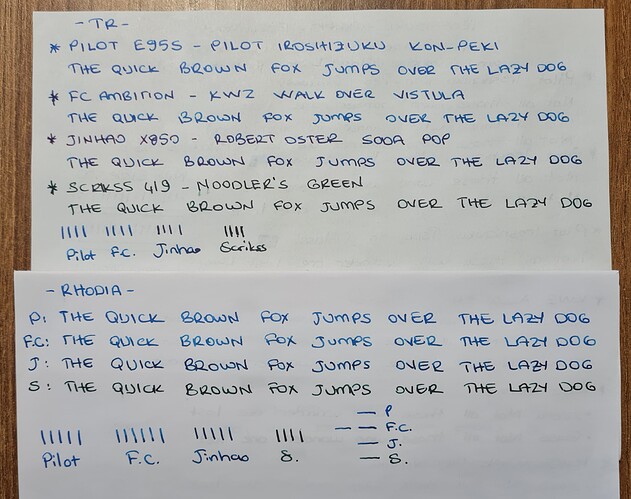 - TR -
* PILOT E95S - PILOT IROSHIZUKU KON-PEKI
THE QUICK BROWN FOX JUMPS OVER THE LAZY DOG
* FC AMBITION - KWZ WALK OVER VISTULA
THE QUICK BROWN FOX JUMPS OVER THE LAZY DOG
* JINHAO X850 - ROBERT OSTER SODA POP
THE QUICK BROWN FOX JUMPS OVER THE LAZY DOG
* SCRKSS 419 - NOODLER'S GREEN
THE QUICK BROWN FOX JUMPS OVER THE LAZY DOG
Pilot F.C. Jinhao Scrikss
- RHODIA -
P: THE QUICK BROWN FOX JUMPS OVER THE LAZY DOG
F.C: THE QUICK BROWN FOX JUMPS OVER THE LAZY DOG
J: THE QUICK BROWN FOX JUMPS OVER THE LAZY DOG
S: THE QUICK BROWN FOX JUMPS OVER THE LAZY DOG
Pilot F.C. Jinhao S.
— P
— — F.C.
— J.
— S.